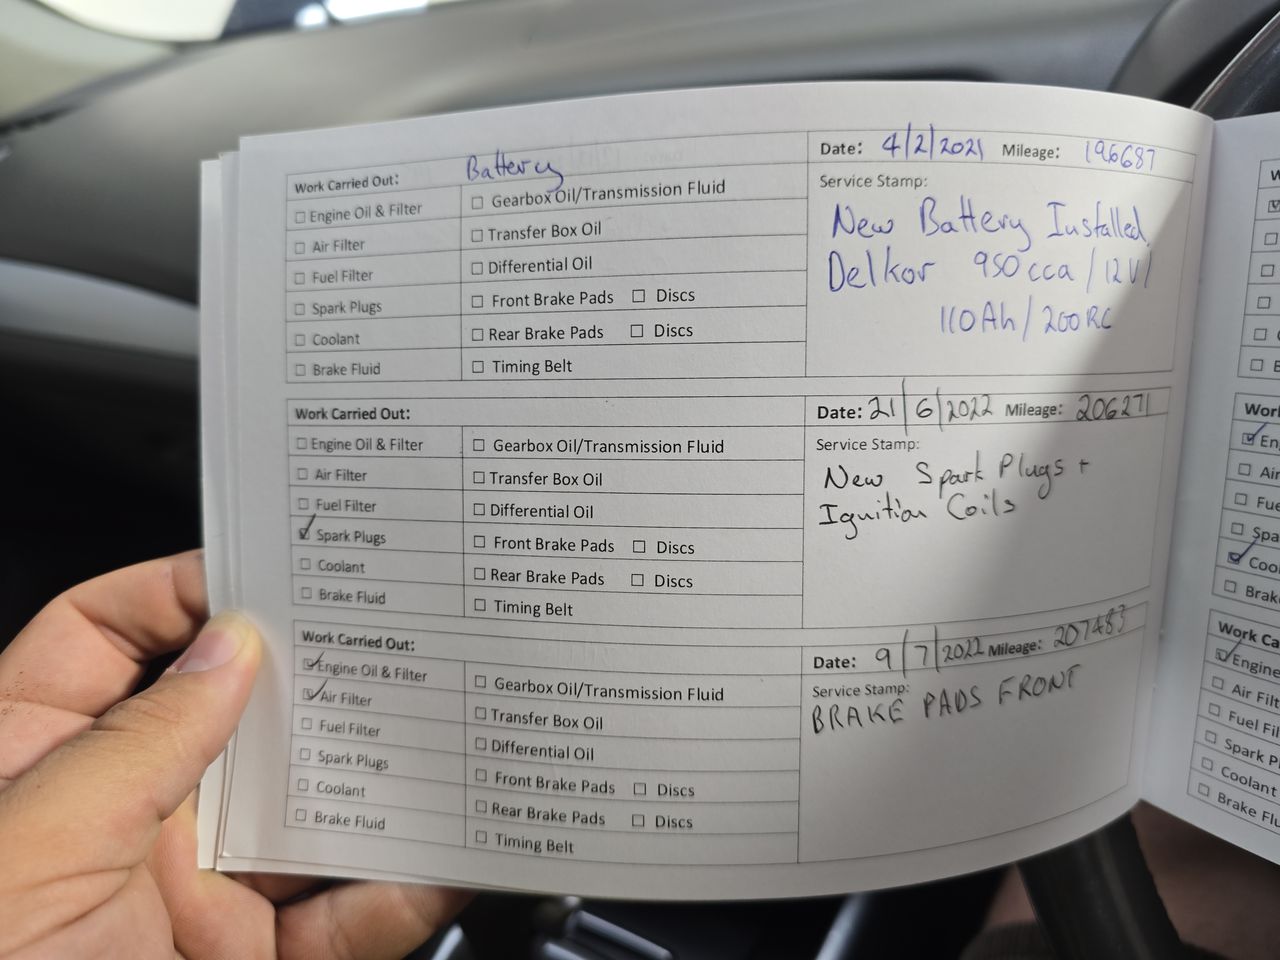 Battery
Date: 4/2/2021 Mileage: 196687
Work Carried Out:
☐ Engine Oil & Filter ☐ Gearbox Oil/Transmission Fluid
☐ Air Filter ☐ Transfer Box Oil
☐ Fuel Filter ☐ Differential Oil
☐ Spark Plugs ☐ Front Brake Pads ☐ Discs
☐ Coolant ☐ Rear Brake Pads ☐ Discs
☐ Brake Fluid ☐ Timing Belt
Service Stamp:
New Battery Installed.
Delkor 950cca/12V/
110Ah/200RC
Work Carried Out:
Date: 21/6/2022 Mileage: 206271
☐ Engine Oil & Filter ☐ Gearbox Oil/Transmission Fluid
☐ Air Filter ☐ Transfer Box Oil
☐ Fuel Filter ☐ Differential Oil
☑ Spark Plugs ☐ Front Brake Pads ☐ Discs
☐ Coolant ☐ Rear Brake Pads ☐ Discs
☐ Brake Fluid ☐ Timing Belt
Service Stamp:
New Spark Plugs +
Ignition Coils
Work Carried Out:
Date: 9/7/2022 Mileage: 207483
☑ Engine Oil & Filter ☐ Gearbox Oil/Transmission Fluid
☑ Air Filter ☐ Transfer Box Oil
☐ Fuel Filter ☐ Differential Oil
☐ Spark Plugs ☐ Front Brake Pads ☐ Discs
☐ Coolant ☐ Rear Brake Pads ☐ Discs
☐ Brake Fluid ☐ Timing Belt
Service Stamp:
BRAKE PADS FRONT
Work Ca
☑ Engine
☐ Air Filt
☐ Fuel Fil
☐ Spark Pl
☐ Coolant
☐ Brake Flu